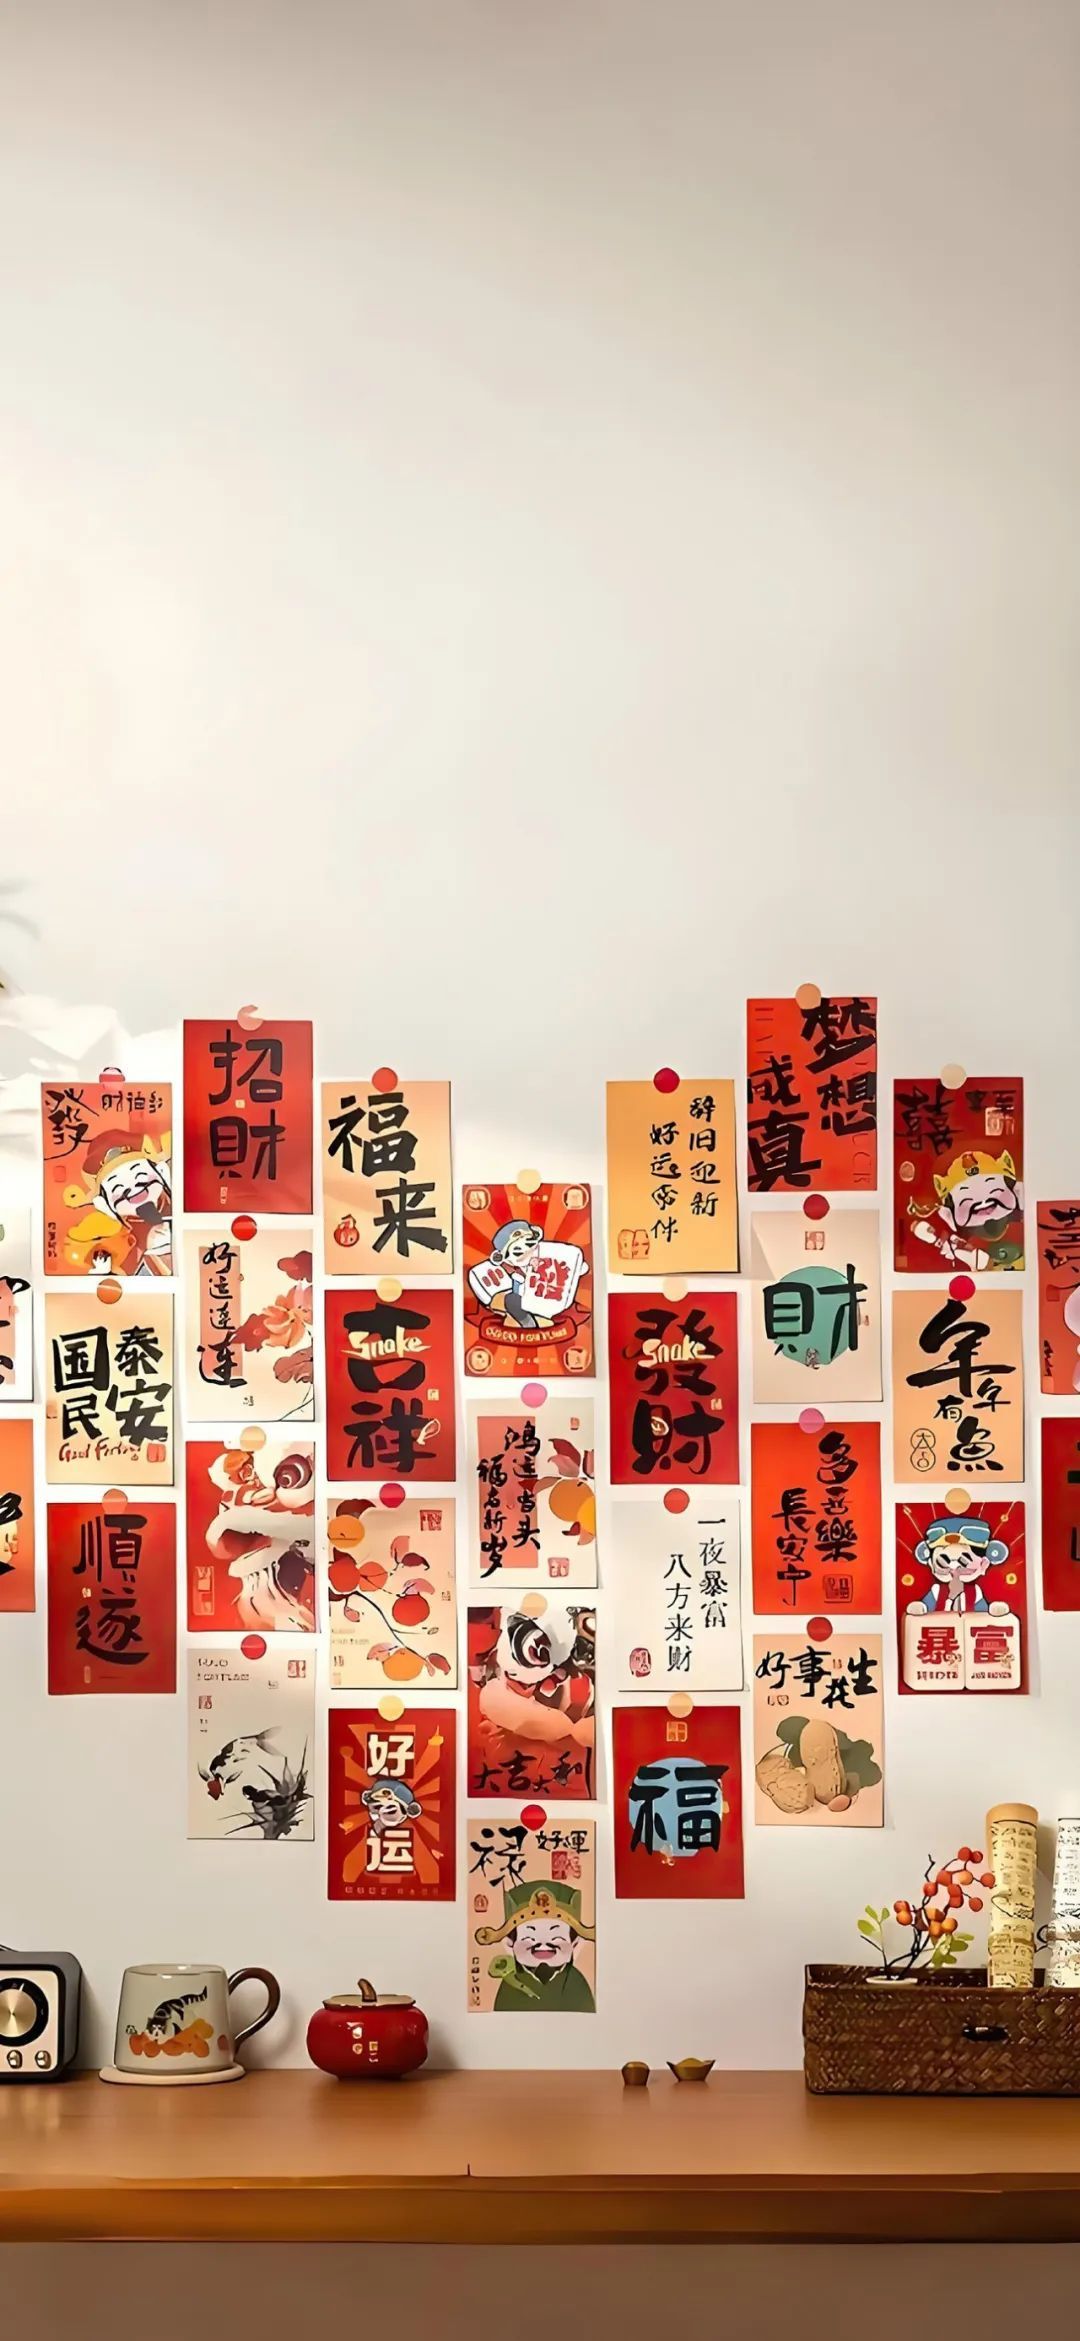 發
招
財
福
来
辞旧迎新
好运零件
梦想
成真
囍
国泰
民安
Good Fortune
好运连连
吉祥
Snake
發
發財
Snake
財
年年有魚
順遂
鸿运当头
福启新岁
一夜暴富
八方来财
多喜樂
長安宁
暴富
好事花生
好运
大吉大利
福
禄
好運